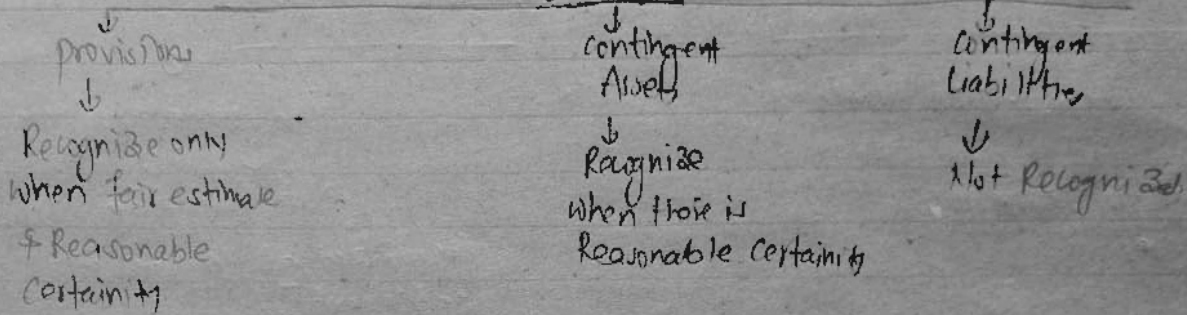 provisions
↓
Recognize only
when fair estimate
& Reasonable
Certainity
↓
Contingent
Assets
↓
Recognize
when there is
Reasonable Certainity
↓
Contingent
Liabilities
↓
Not Recognized